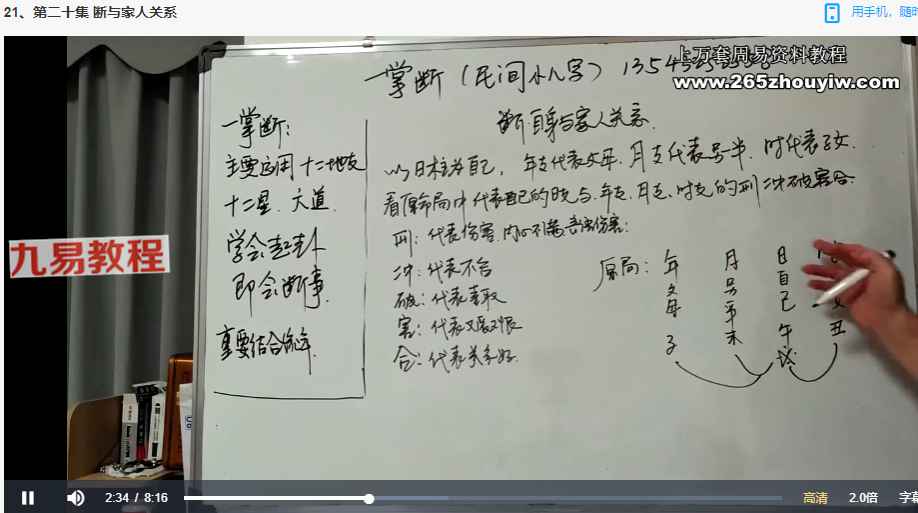 21、第二十集 断与家人关系
用手机，随时
上万套周易资料教程
www.265zhouyiw.com
一掌断（民间小八字）
断自身与家人关系.
一掌断：
主要运用十二地支
十二星、六道.
学会起卦
即会断事.
重要结合流年.
九易教程
以日柱为自己，年支代表父母.月支代表兄弟.时代表子女.
看原命局中代表自己的日支与.年支.月支.时支的刑冲破害合.
刑：代表伤害
冲：代表不合
破：代表
害：代表
合：代表关系好.
原局：年 月 日
父母 兄弟 自己 女
子 未 午 丑
2:34 / 8:16
高清
2.0倍
字幕